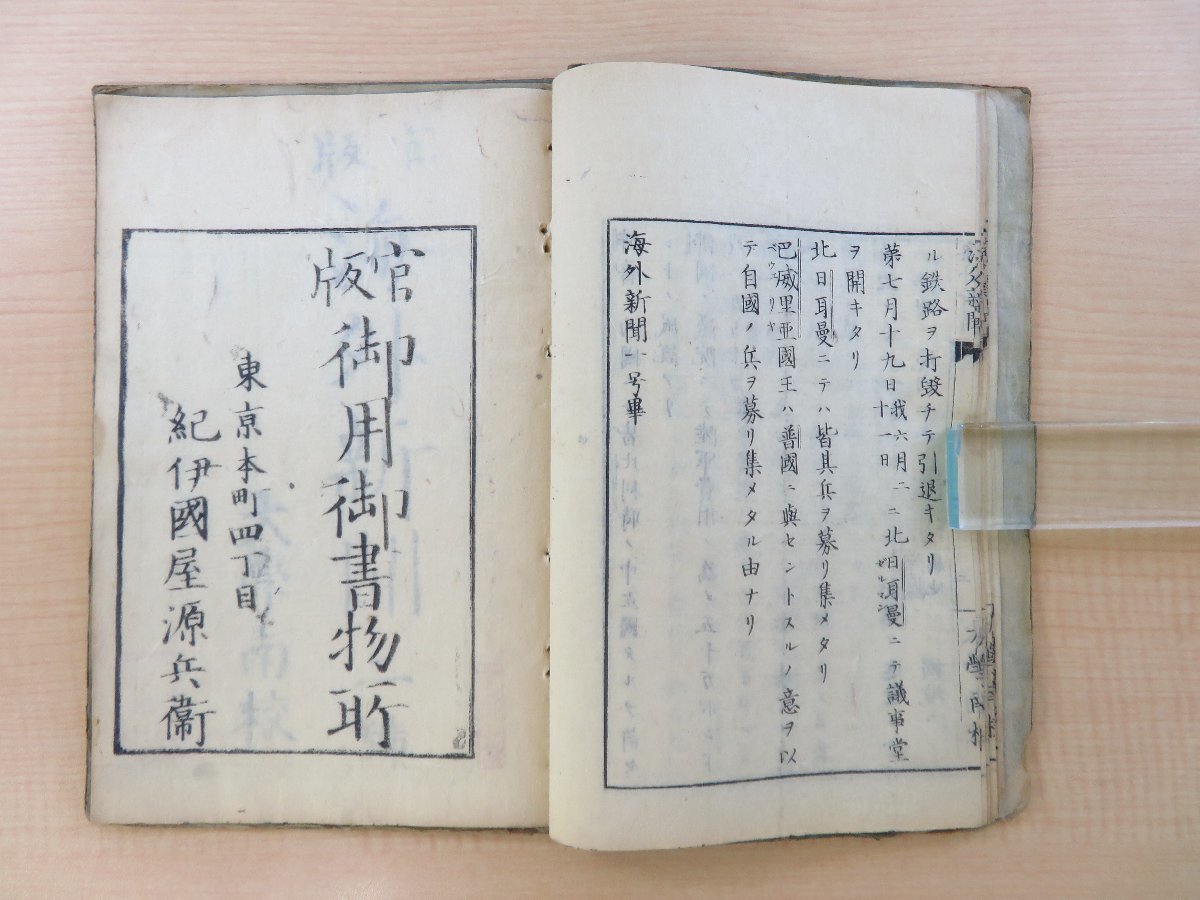 ル鉄路ヲ打毀チテ引退キタリ
第七月十九日我六月二十一日ニ北日耳曼ゼルマンニテ議事堂
ヲ開キタリ
北日耳曼ニテハ皆其兵ヲ募リ集メタリ
巴威里亜バウエリヤ國王ハ普國ニ與セントスルノ意ヲ以
テ自國ノ兵ヲ募リ集メタル由ナリ
海外新聞 号畢
官版御用御書物所
東京本町四丁目
紀伊國屋源兵衞